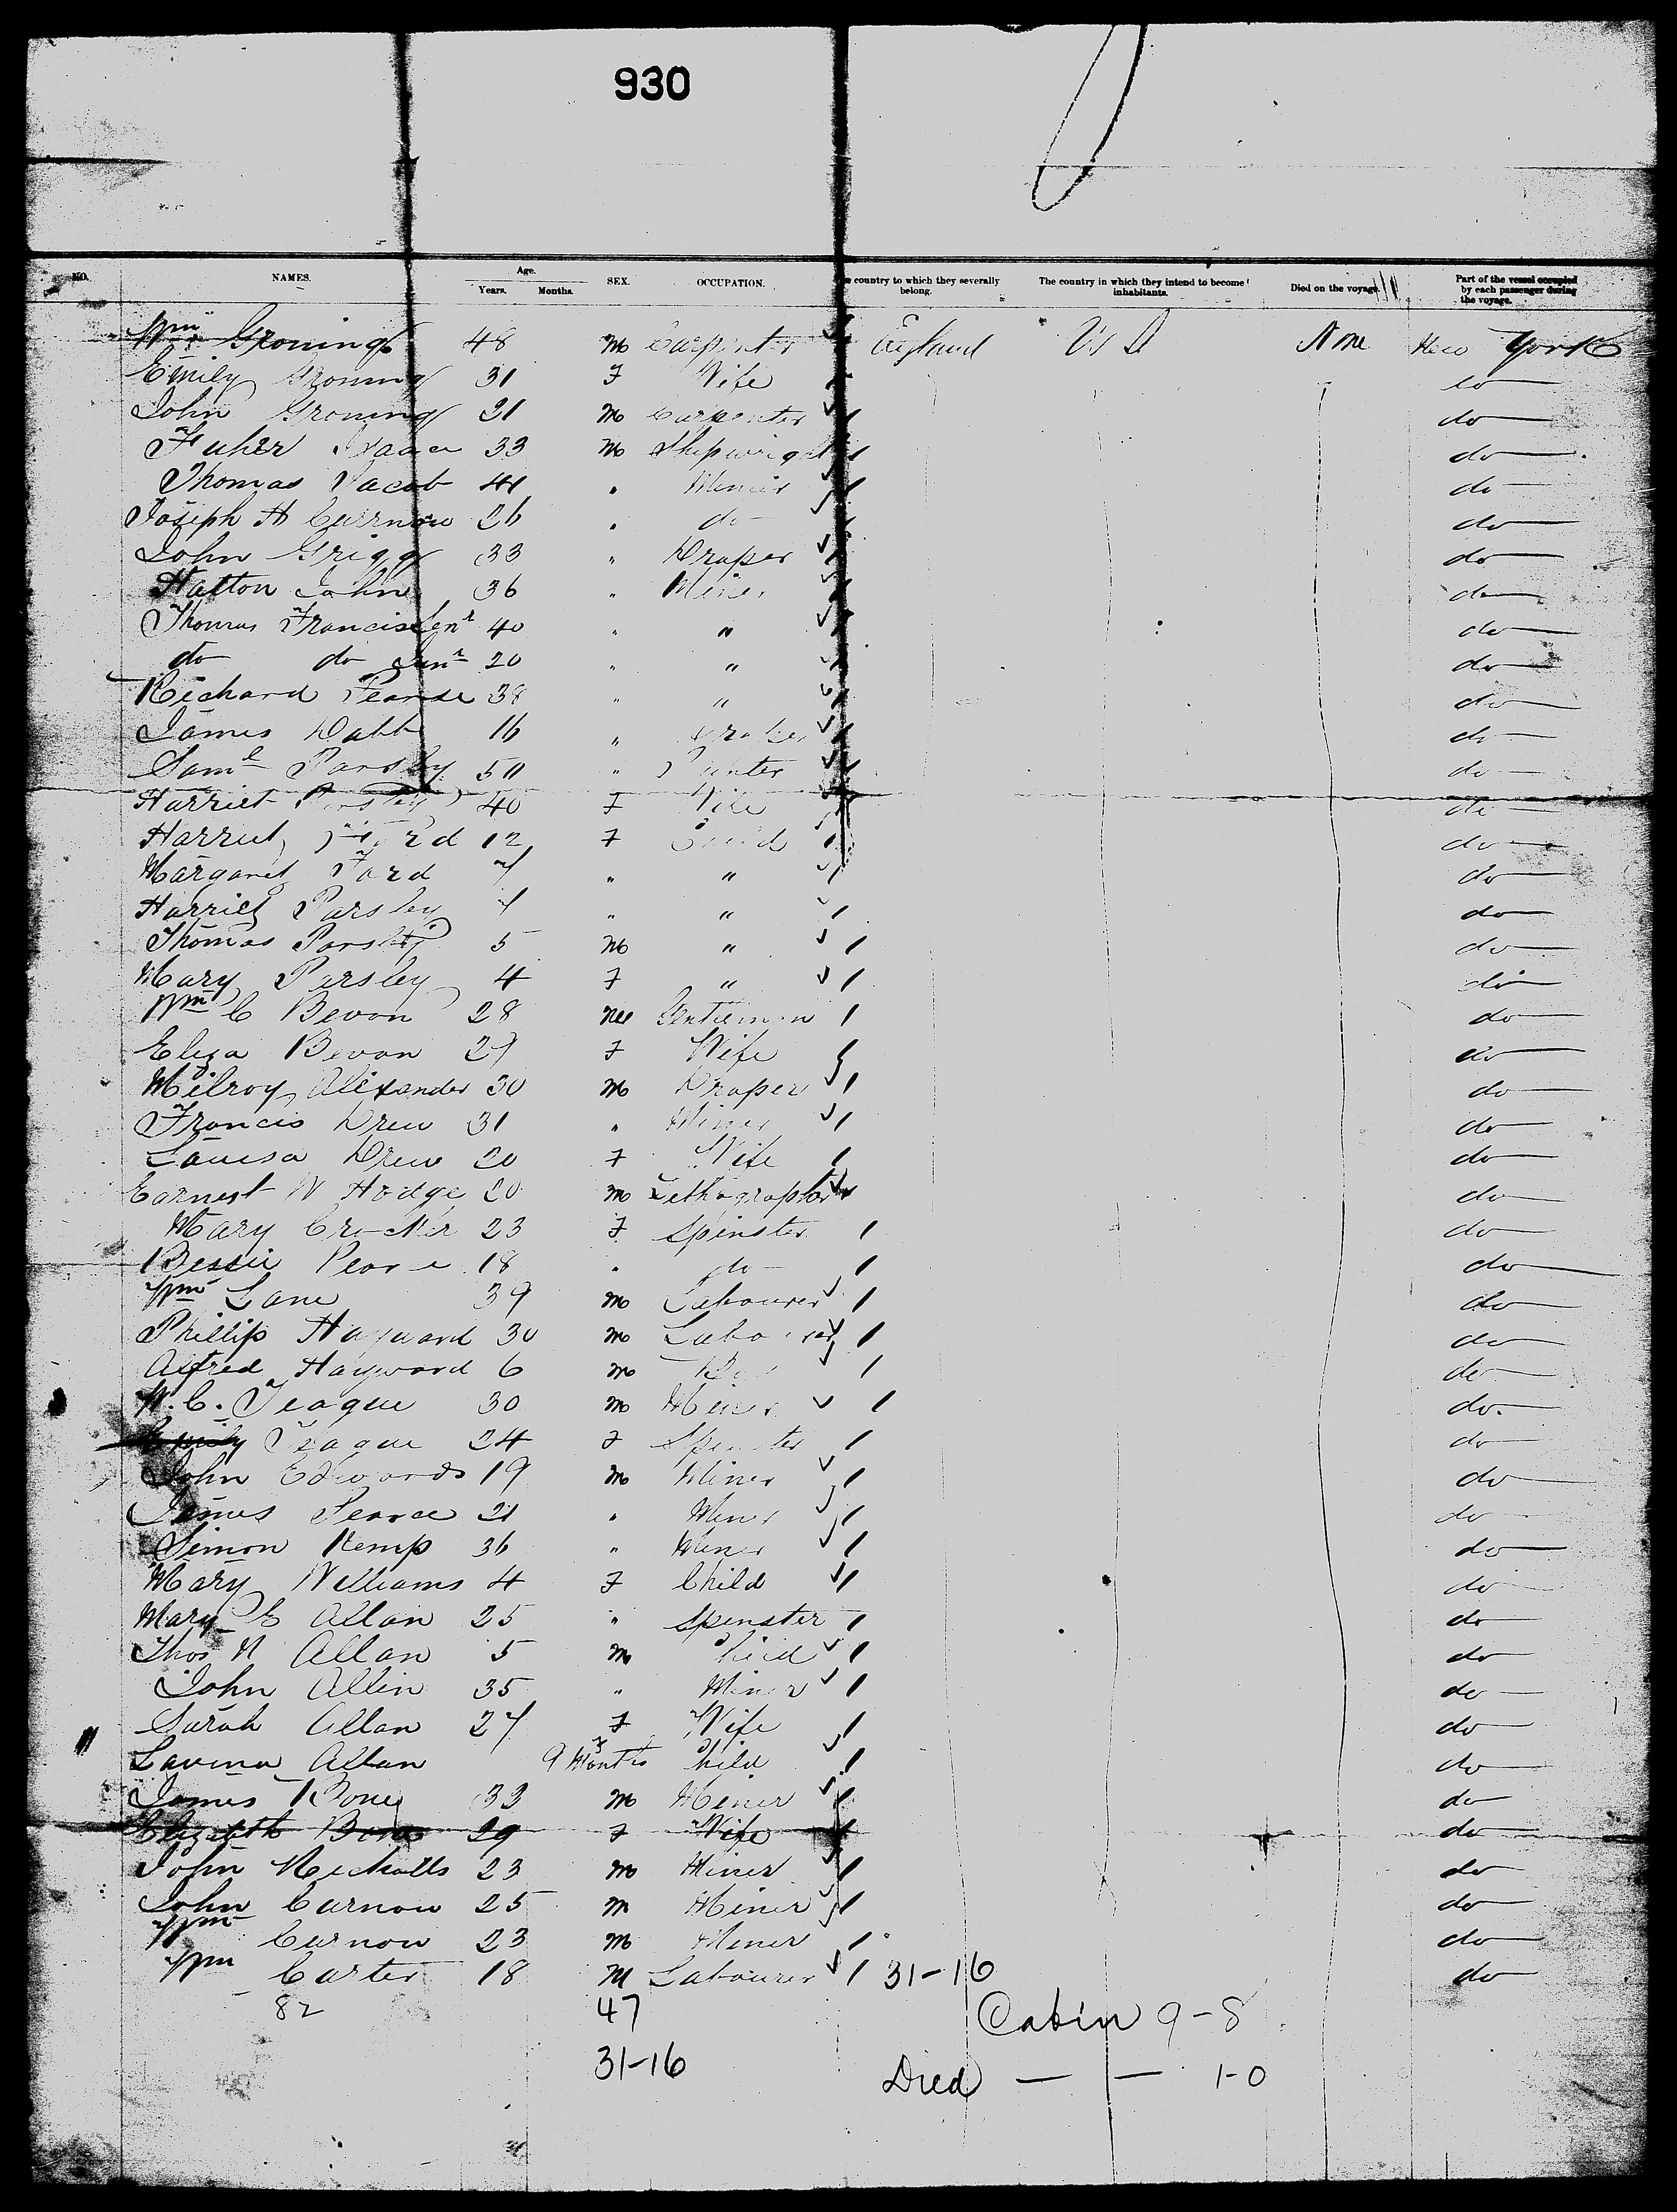 930
NO. NAMES. Age. Years. Months. SEX. OCCUPATION. country to which they severally belong. The country in which they intend to become inhabitants. Died on the voyage. Part of the vessel occupied by each passenger during the voyage.
Wm Groning 48 M Carpenter England U S None New York
Emily Groning 31 F Wife do
John Groning 21 M Carpenter do
Isaac 33 M Shipwright do
Thomas Jacob 41 " Miner do
Joseph H Curnow 26 " do do
John Grigg 33 " Draper do
Hatton John 36 " Miner do
Thomas Francis Senr 40 " " do
do do Junr 20 " " do
Richard Pearse 38 " " do
James Dabb 16 " Draper do
Saml Parsley 50 " do
Harriet Parsley 40 F Wife do
Harriet Ford 12 F Child do
Margaret Ford 7 " " do
Harriet Parsley 7 " " do
Thomas Parsley 5 M " do
Mary Parsley 4 F " do
Wm C Bevan 28 M Gentleman do
Eliza Bevan 27 F Wife do
Milroy Alexander 30 M Draper do
Francis Drew 31 " Miner do
Louisa Drew 20 F Wife do
Earnest W Hodge 20 M Lethographer do
Mary Crocker 23 F Spinster do
Bessie Pearce 18 " do do
Wm Lane 39 M Labourer do
Phillip Hayward 30 M Labourer do
Alfred Hayward 6 M Boy do
W. C. Teague 30 M Miner do.
Emily Teague 24 F Spinster do
John Edwards 19 M Miner do
James Pearce 21 " Miner do
Simon Kemp 36 " Miner do
Mary Williams 4 F Child do
Mary E Allan 25 " Spinster do
Thos N Allan 5 M Child do
John Allin 35 " Miner do
Sarah Allan 27 F Wife do
Lavina Allan 9 Months F Child do
James Bone 33 M Miner do
Elizabeth Bone 29 F Wife do
John Nicholls 23 M Miner do
John Curnow 25 M Miner do
Wm Curnow 23 M Miner do
Wm Carter 18 M Labourer 31-16 do
82 47 Cabin 9-8
31-16 Died — — 1-0